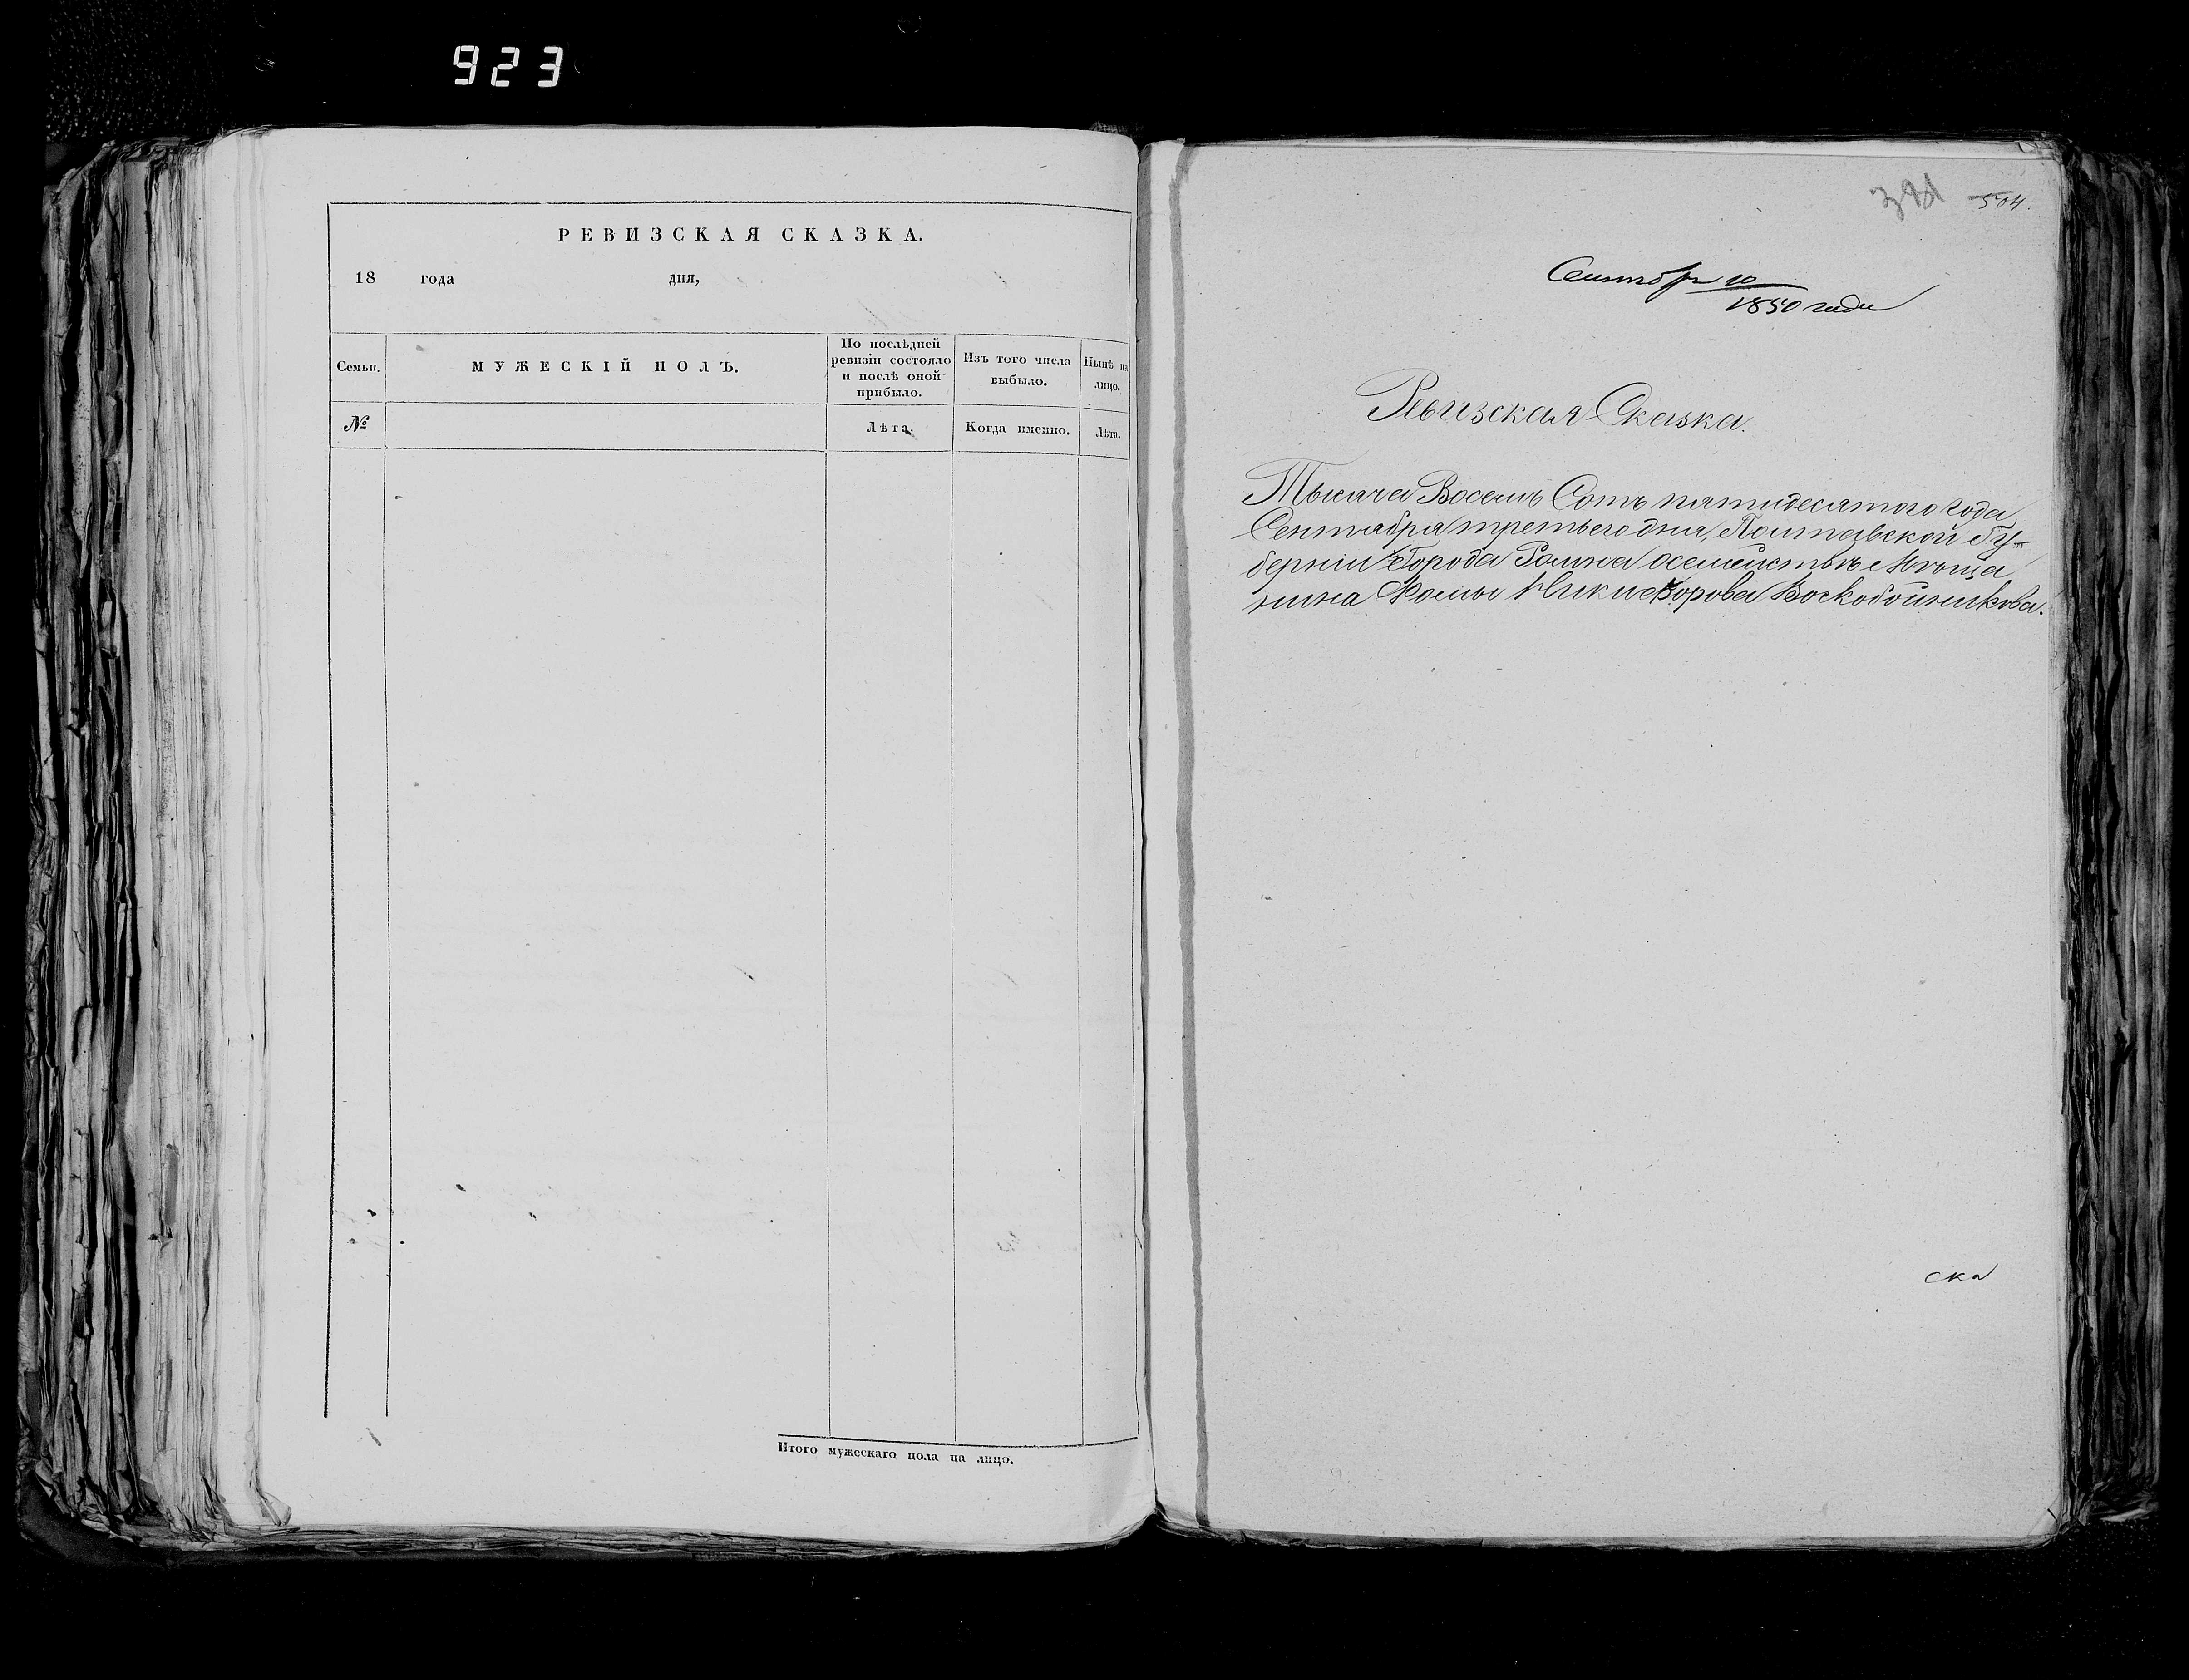 923
РЕВИЗСКАЯ СКАЗКА.
18 года дня,
Семьи.
МУЖЕСКІЙ ПОЛЪ.
По послѣдней
ревизіи состояло
и послѣ оной
прибыло.
Изъ того числа
выбыло.
Нынѣ на
лицо.
№
Лѣта.
Когда именно.
Лѣта.
Итого мужескаго пола на лицо.
504.
Сентябр 10
1850 года
Ревизская Сказка.
Тысяча Восемь Сотъ пятидесятого года
Сентября третьего дня, Полтавской Гу-
берніи Города Ромна осемействѣ Мѣща
нина Фомы Никифорова Воскобойникова.
ска